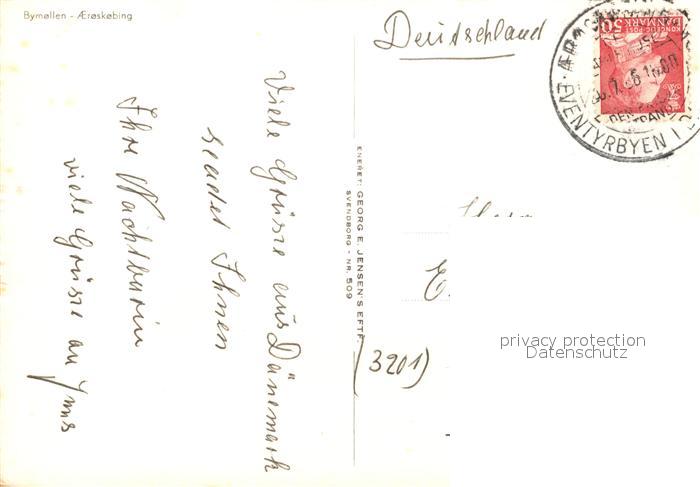 Bymøllen - Ærøskøbing
Viele Grüsse aus Dänemark
sendet Ihnen
Ihre Nachbarin
viele Grüsse an
ENERET: GEORG E. JENSEN'S EFTF.
SVENDBORG - NR. 509
Deutschland
KONGELIG POST
DANMARK
50
EVENTYRBYEN I
E.
(3201)
privacy protection
Datenschutz